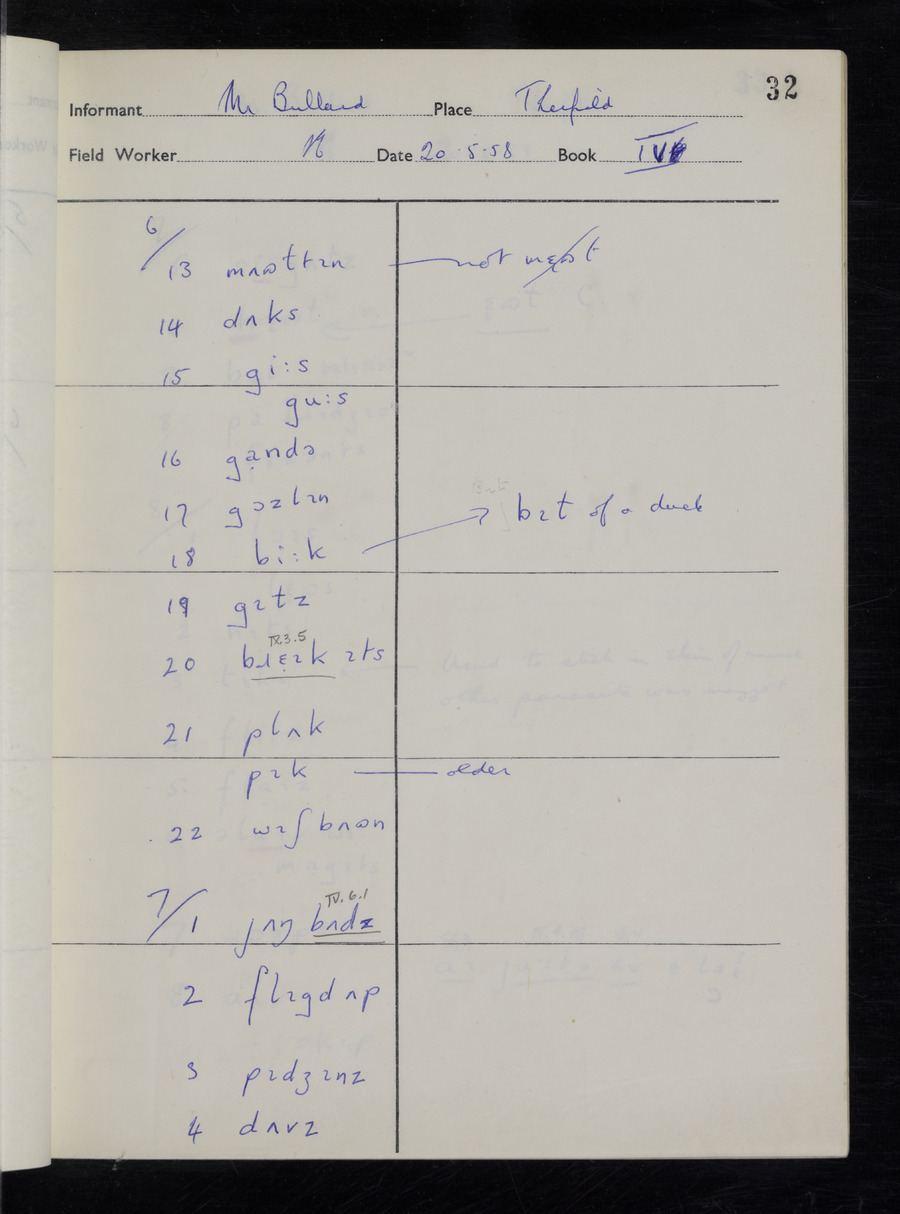 32
Informant Mr Bullard Place Therfield
Field Worker Date 20·5·58 Book IV
6/13 mʌɷtɩn — not
14 dʌks
15 gi:s
gu:s
16 gandə
17 gɔzlɩn
18 bi:k → bɩt of a duck
19 gɩts
IX.3.5
20 ɩts
21 plʌk
pɩk — older
22 wɩʃbʌɷn
IV.6.1
7/1 jʌŋ bʌdz
2 flɩgd ʌp
3 pɩdʒɩnz
4 dʌvz